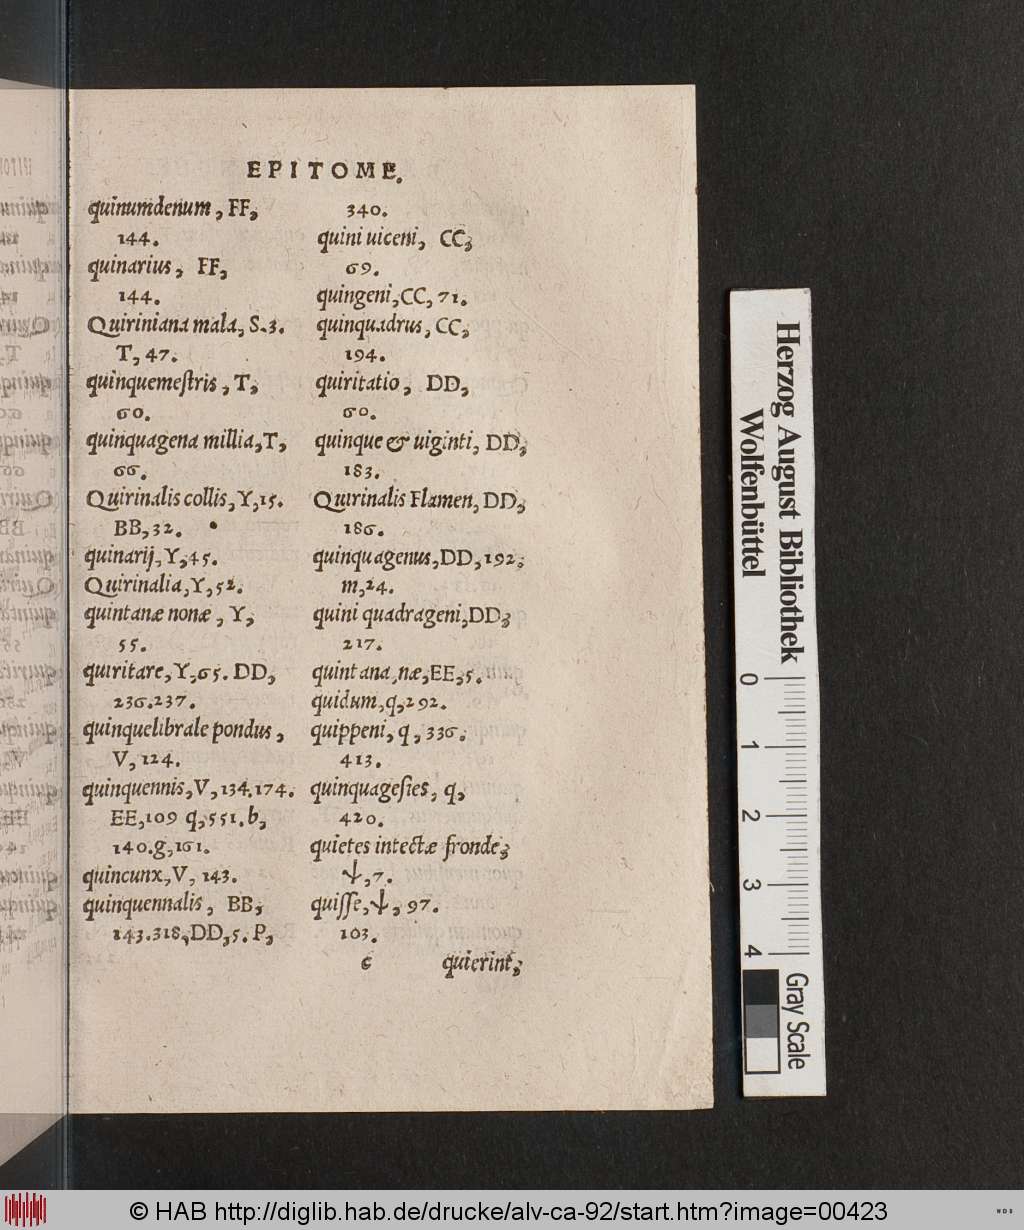 EPITOME.
quinumdenum, FF,
144.
quinarius, FF,
144.
Quiriniana mala, S.3.
T, 47.
quinquemestris, T,
60.
quinquagena millia, T,
66.
Quirinalis collis, Y, 15.
BB, 32.
quinarij, Y, 45.
Quirinalia, Y, 52.
quintanæ nonæ, Y,
55.
quiritare, Y, 65. DD,
236.237.
quinquelibrale pondus,
V, 124.
quinquennis, V, 134.174.
EE, 109 q, 551. b,
140. g, 161.
quincunx, V, 143.
quinquennalis, BB,
143.318, DD, 5. P,
340.
quini uiceni, CC,
69.
quingeni, CC, 71.
quinquadrus, CC,
194.
quiritatio, DD,
60.
quinque & uiginti, DD,
183.
Quirinalis Flamen, DD,
186.
quinquagenus, DD, 192,
m, 24.
quini quadrageni, DD,
217.
quintana, næ, EE, 5.
quidum, q, 292.
quippeni, q, 336.
413.
quinquagesies, q,
420.
quietes intectæ fronde,
ψ, 7.
quisse, ψ, 97.
103.
c quierint,
Herzog August Bibliothek
Wolfenbüttel
0 1 2 3 4
Gray Scale
© HAB http://diglib.hab.de/drucke/alv-ca-92/start.htm?image=00423